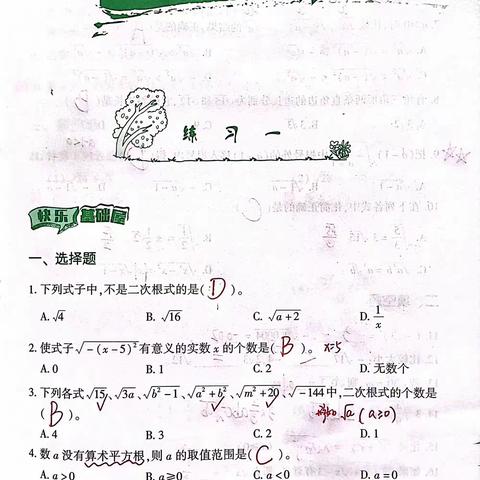 练习一
快乐基础屋
一、选择题
1. 下列式子中,不是二次根式的是( D )。
A.√4 B.√16 C.√(a+2) D.1/x
2. 使式子√(-(x-5)²)有意义的实数 x 的个数是( B )。 x=5
A.0 B.1 C.2 D.无数个
3. 下列各式√15、√3a、√(b²-1)、√(a²+b²)、√(m²+20)、√-144中,二次根式的个数是
( B )。 √a (a≥0)
A.4 B.3 C.2 D.1
4. 数 a 没有算术平方根,则 a 的取值范围是( C )。
A.a>0 B.a≥0 C.a<0 D.a=0